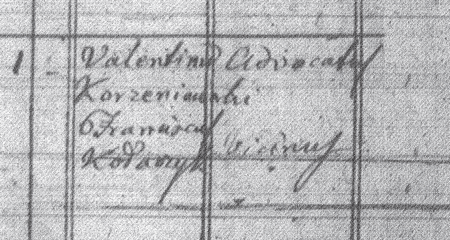 1 Valentinus Advocatus
Korzeniowski
Franciscus
Kołtamyk Vicinus